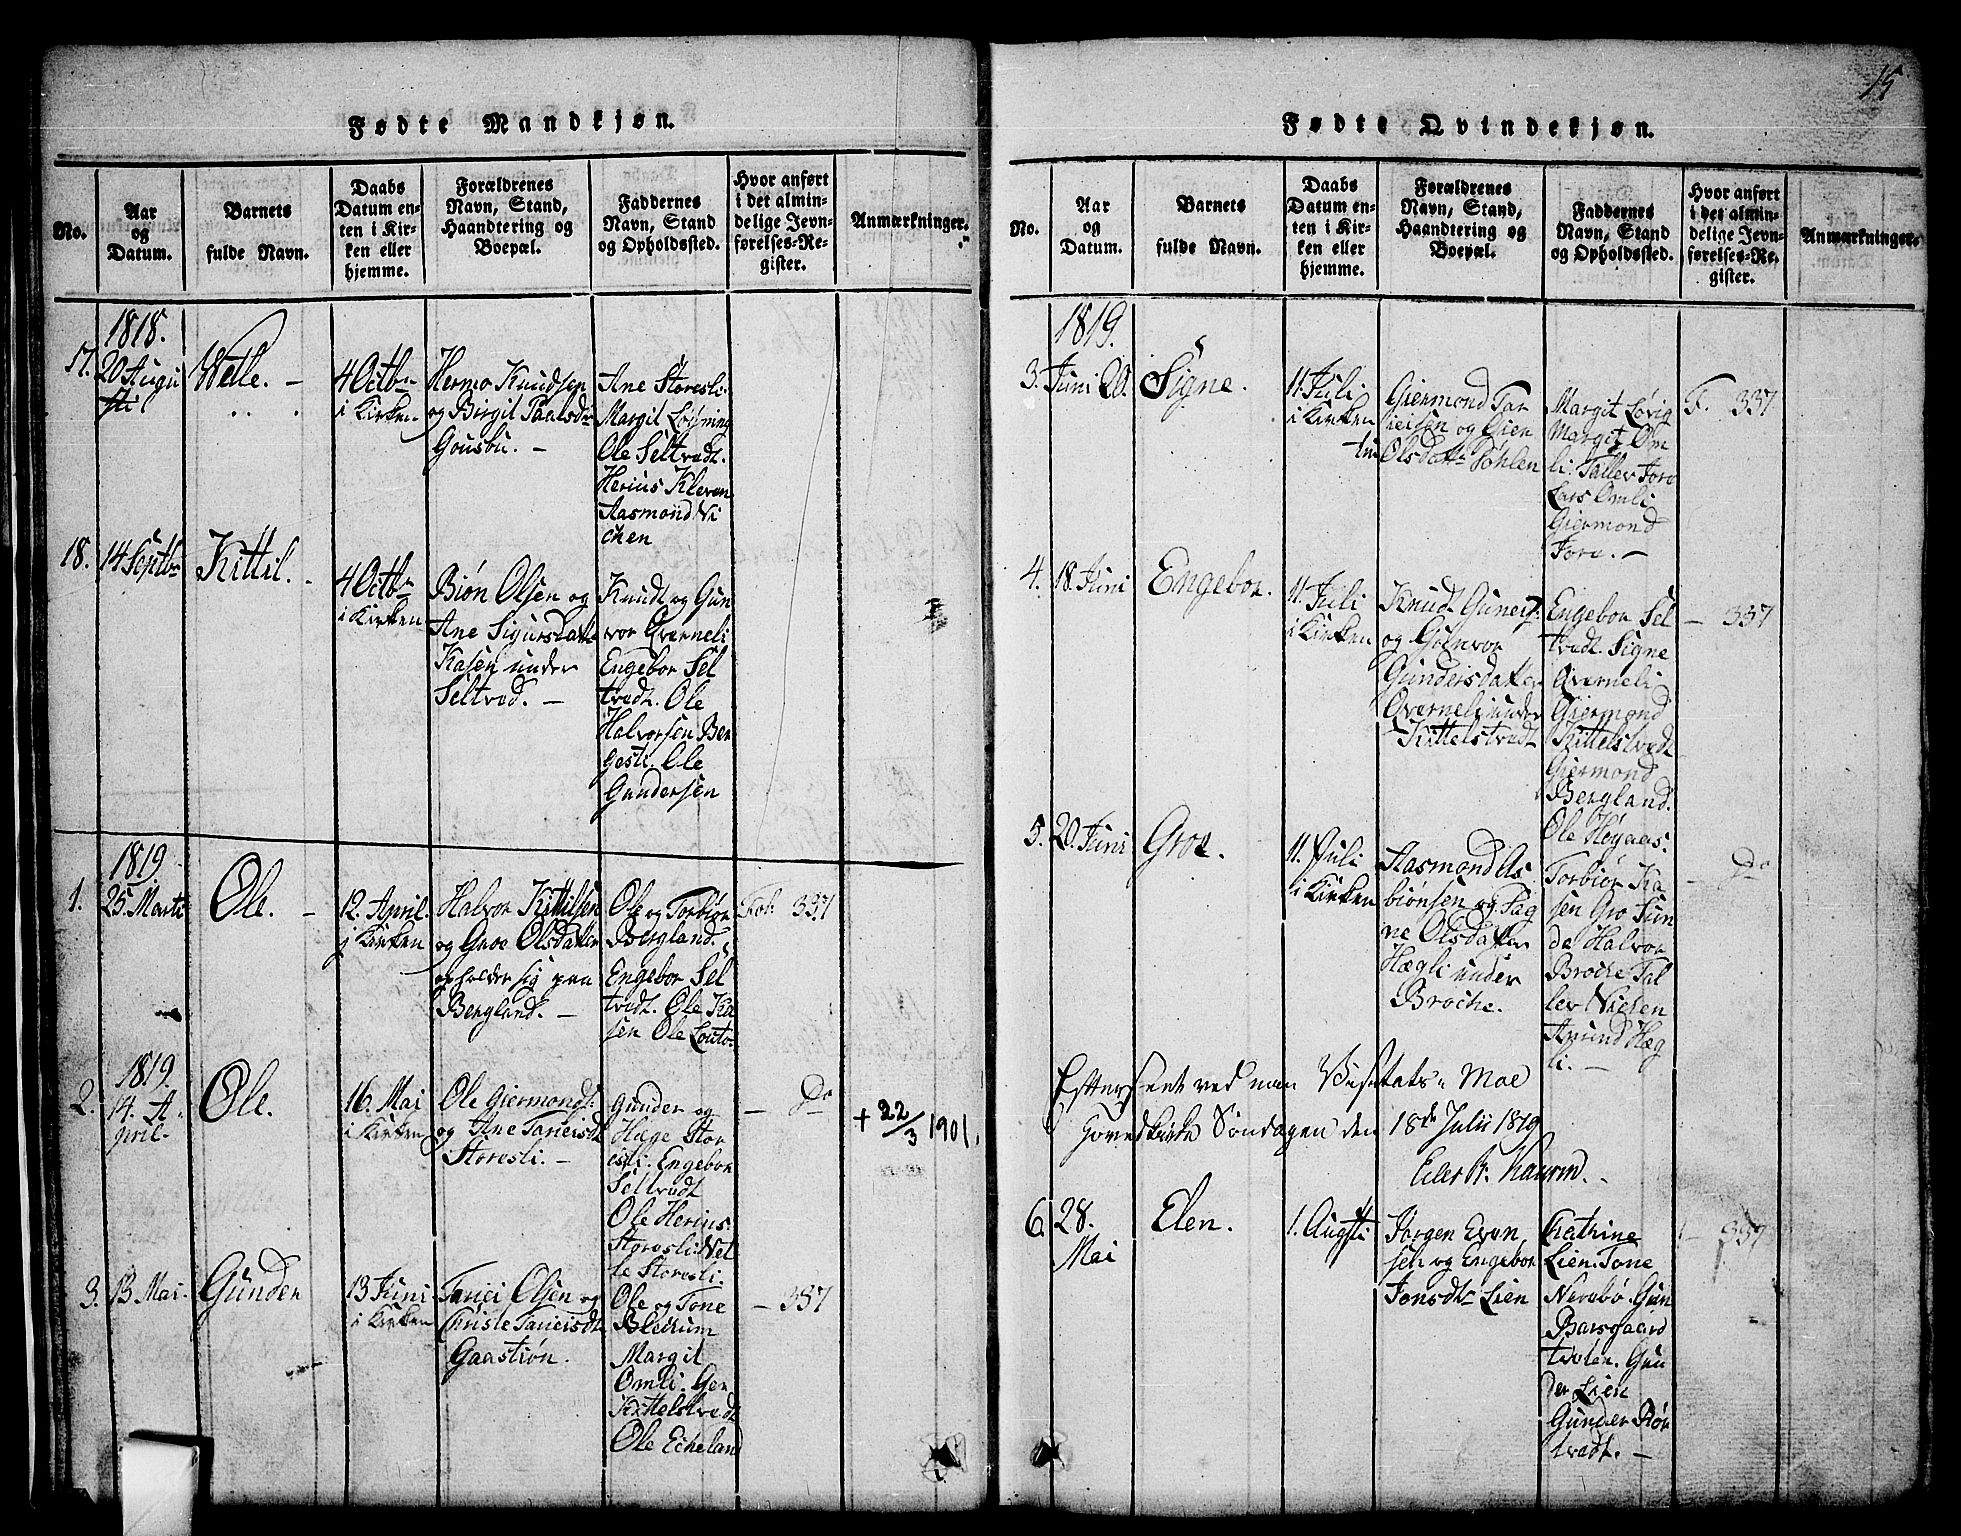 Fødte Mandkjøn.
No.
Aar
og
Datum.
Barnets
fulde Navn.
Daabs
Datum en-
ten i Kir-
ken eller
hjemme.
Forældrenes
Navn, Stand,
Haandtering og
Boepæl.
Faddernes
Navn, Stand
og Opholdssted.
Hvor anført
i det almin-
delige Jevn-
førelses-Re-
gister.
Anmærkninger.
1818.
17. 20 Augu
sti
Welle. —
4 Octbr
i Kirken
Hermo Knudsen
og Birgit Paalsdr
Gousbu. —
Ane Storesli.
Margit
Ole Seltvedt.
Herius Kleven
Aasmond Vi
chen
18. 14 Septbr
Kittil. -
4 Octbr
i Kirken
Biøn Olsen og
Ane Sigursdatter
Kasen under
Seltved. —
Knudt og Gun
vor Qverneli
Engebor Sel
tvedt. Ole
Halvorsen Ber
gesli. Ole
Gundersen
1819
1. 25 Marti
Ole. -
12. April.
i Kirken
Halvor Kittilsen
og Groe Olsdatter
opholder sig paa
Bergland. —
Ole og Torbiør
Bergland.
Engebor Sel
tvedt. Ole Ka
sen Ole
Fol. 337
1819
2. 14. A-
pril.
Ole.
16. Mai
i Kirken
Ole Giermonds:
og Ane Tarieisdt
Storesli. —
Gunder og
Hage Stor
esli. Engebor
Seltvedt
Ole Herius
Storesli. Vel
le Storesli.
— Do
+ 22/3 1901.
3. 13 Mai.
Gunder
13 Juni
i Kirken
Tariei Olsen og
Christe Tarieisdt
Gaastiøn.
Ole og Tone
Bledrum
Margit
Omli. Ger
Kittelstvedt
Ole Echeland
— 337
15
Fødte Qvindekjøn.
No.
Aar
og
Datum.
Barnets
fulde Navn.
Daabs
Datum en-
ten i Kir-
ken eller
hjemme.
Forældrenes
Navn, Stand,
Haandtering og
Boepæl.
Faddernes
Navn, Stand
og Opholdssted.
Hvor anført
i det almin-
delige Jevn-
førelses-Re-
gister.
Anmærkninger.
1819.
3. Juni 20.
Signe.
11. Juli
i Kirken
Giermond Tar
ieisen og Gien
Olsdattr
Margit Løvig
Margit Om
li. Tallev Fore
Lars Omli
Giermond
Fore. —
F. 337
4. 18. Juni
Engebor.
11. Juli
i Kirken
Knudt Guners:
og Gunvor
Gundersdatter
Qverneli under
Kittelstvedt
Engebor Sel
tvedt. Signe
Qverneli
Giermond
Kittelstvedt
Giermond
Bergland.
Ole Høgaas.
— 337
5. 20. Juni
Groe.
11. Juli
i Kirken
Aasmond As
biønsen og Sag
ne Olsdatter
Hægli under
Broche.
Torbiør Ka
sen Gro Sun
de Halvor
Broche Tal
lev Nielsen
Amund Hæg
li. —
— Do
Efterseet ved min Visitats i Moe
Hovedkirke Søndagen den 18de Julii 1819
Eiler R. Kaurin.
6. 28.
Mai
Elen.
1. Augsti
Jørgen Even
sen og Engebor
Jonsdtr Lien
Chatrine
Lien. Tone
Nerebø. Gun
Barsgaard
tvolen. Gun
der Lien
Gunder Røn
tvedt. —
— 337